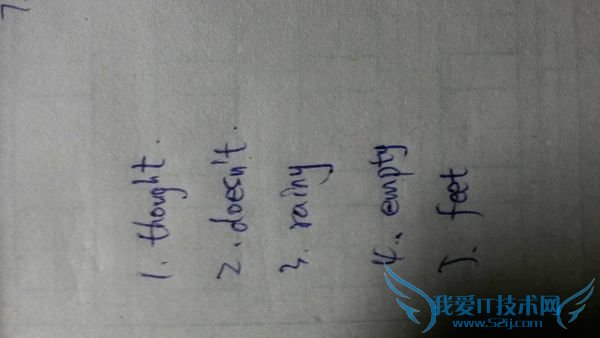 1. thought.
2. doesn't.
3. rainy
4. empty
5. feet
我爱IT技术网
www.52ij.com